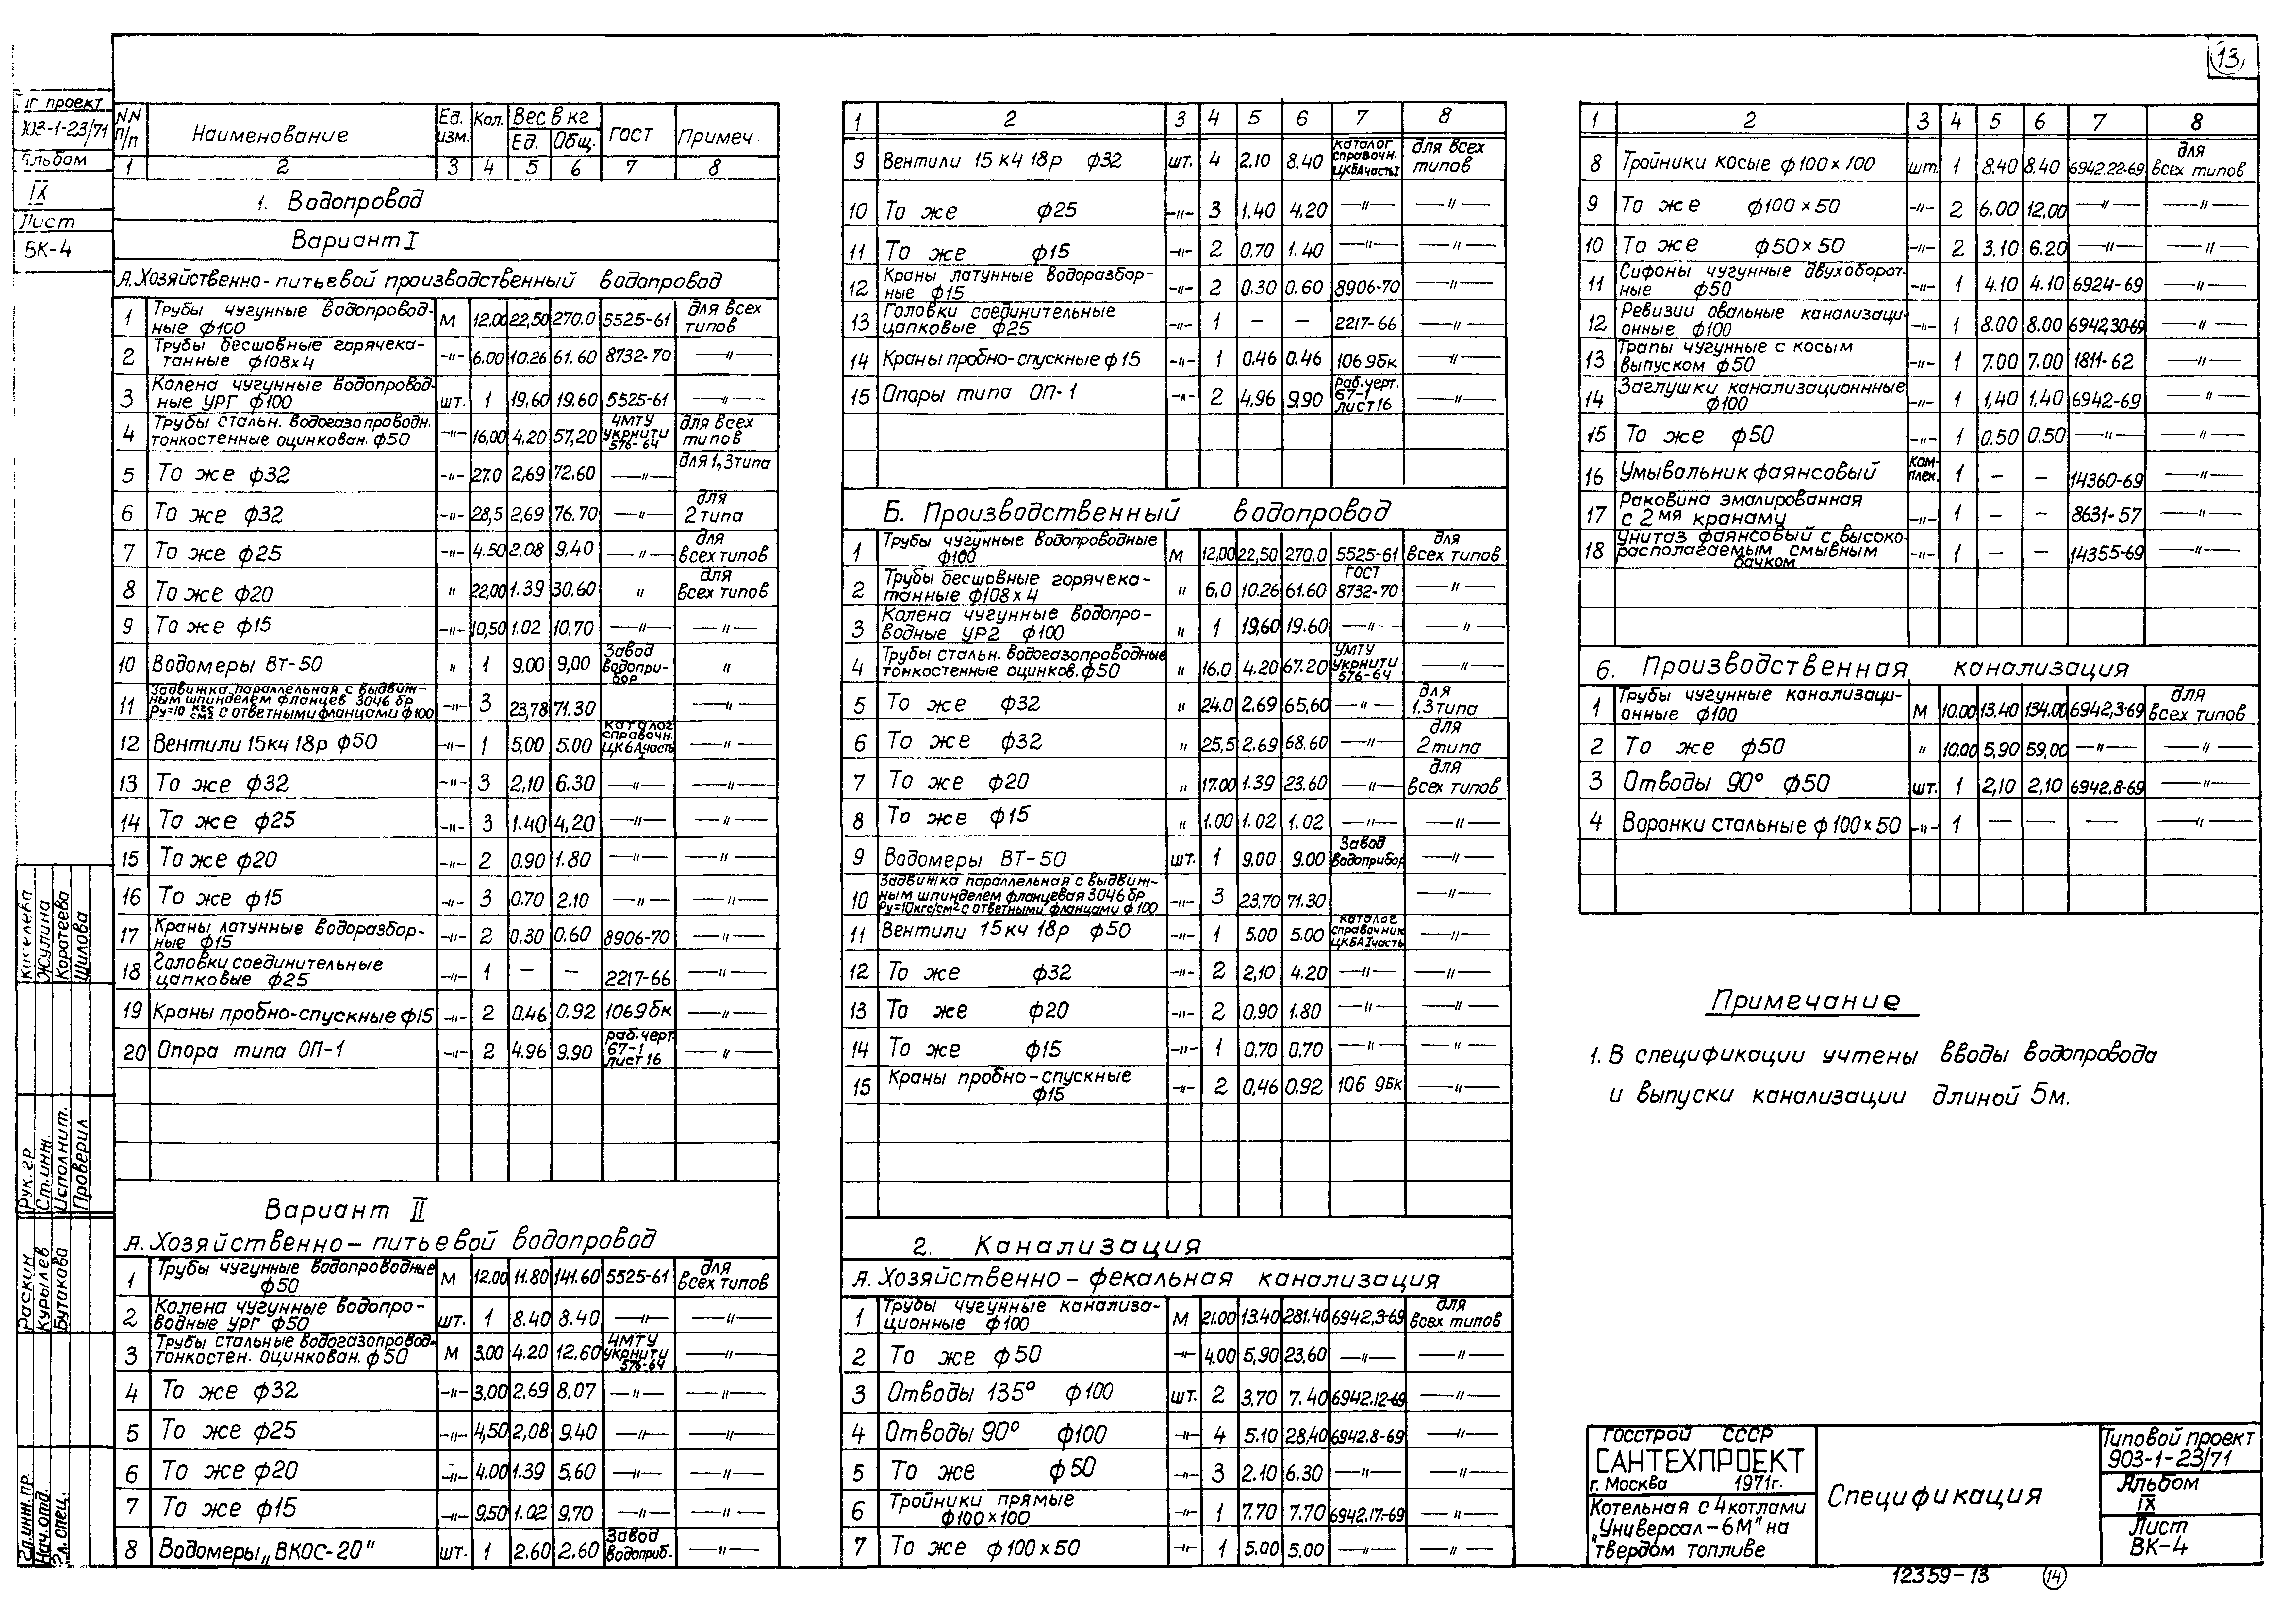 13
Тг проект
903-1-23/71
Альбом
IX
Лист
ВК-4
N.N п/п Наименование Ед. изм. Кол. Вес в кг Ед. Общ. ГОСТ Примеч.
1 2 3 4 5 6 7 8
1. Водопровод
Вариант I
А. Хозяйственно-питьевой производственный водопровод
1 Трубы чугунные водопровод-ные ф100 М 12.00 22,50 270.0 5525-61 для всех типов
2 Трубы бесшовные горячека-танные ф108х4 -"- 6.00 10.26 61.60 8732-70 -"-
3 Колена чугунные водопровод-ные УРГ ф100 шт. 1 19,60 19.60 5525-61 -"-
4 Трубы стальн. водогазопроводн. тонкостенные оцинкован. ф50 -"- 16,00 4.20 57,20 ЧМТУ укрнити 576-64 для всех типов
5 То же ф32 -"- 27.0 2,69 72.60 -"- для 1,3 типа
6 То же ф32 -"- 28,5 2,69 76.70 -"- для 2 типа
7 То же ф25 -"- 4.50 2.08 9,40 -"- для всех типов
8 То же ф20 " 22,00 1.39 30.60 " для всех типов
9 То же ф15 -"- 10,50 1.02 10.70 -"- -"-
10 Водомеры ВТ-50 " 1 9,00 9,00 Завод водопри-бор "
11 Задвижка параллельная с выдвиж-ным шпинделем фланцев 3046 бр Ру=10 кгс/см2 с ответными фланцами ф100 -"- 3 23,78 71.30 -"-
12 Вентили 15кч 18р ф50 -"- 1 5,00 5.00 каталог справочн. ЦКБА часть I -"-
13 То же ф32 -"- 3 2,10 6.30 -"- -"-
14 То же ф25 -"- 3 1.40 4,20 -"- -"-
15 То же ф20 -"- 2 0.90 1.80 -"- -"-
16 То же ф15 -"- 3 0.70 2.10 -"- -"-
17 Краны латунные водоразбор-ные ф15 -"- 2 0.30 0.60 8906-70 -"-
18 Головки соединительные цапковые ф25 -"- 1 - - 2217-66 -"-
19 Краны пробно-спускные ф15 -"- 2 0.46 0.92 1069бк -"-
20 Опора типа ОП-1 -"- 2 4.96 9.90 раб. черт. 67-1 лист 16 -"-
Вариант II
А. Хозяйственно-питьевой водопровод
1 Трубы чугунные водопроводные ф50 М 12.00 11.80 141.60 5525-61 для всех типов
2 Колена чугунные водопро-водные УРГ ф50 шт. 1 8.40 8.40 -"- -"-
3 Трубы стальные водогазопровод. тонкостен. оцинкован. ф50 М 3.00 4.20 12.60 ЧМТУ укрнити 576-64 -"-
4 То же ф32 -"- 3,00 2.69 8.07 -"- -"-
5 То же ф25 -"- 4,50 2,08 9.40 -"- -"-
6 То же ф20 -"- 4.00 1.39 5,60 -"- -"-
7 То же ф15 -"- 9.50 1.02 9,70 -"- -"-
8 Водомеры „ВКОС-20" шт. 1 2.60 2.60 Завод водоприб. -"-
1 2 3 4 5 6 7 8
9 Вентили 15 кч 18р ф32 шт. 4 2.10 8.40 каталог справочн. ЦКБА часть I для всех типов
10 То же ф25 -"- 3 1.40 4.20 -"- -"-
11 То же ф15 -"- 2 0.70 1.40 -"- -"-
12 Краны латунные водоразбор-ные ф15 -"- 2 0.30 0.60 8906-70 -"-
13 Головки соединительные цапковые ф25 -"- 1 - - 2217-66 -"-
14 Краны пробно-спускные ф15 -"- 1 0.46 0.46 1069бк -"-
15 Опоры типа ОП-1 -"- 2 4,96 9.90 раб. черт. 67-1 лист 16 -"-
Б. Производственный водопровод
1 Трубы чугунные водопроводные ф100 М 12.00 22,50 270.0 5525-61 для всех типов
2 Трубы бесшовные горячека-танные ф108х4 " 6,0 10.26 61.60 ГОСТ 8732-70 -"-
3 Колена чугунные водопро-водные УР2 ф100 " 1 19,60 19.60 -"- -"-
4 Трубы стальн. водогазопроводные тонкостенные оцинков. ф50 " 16.0 4.20 67.20 УМТУ укрнити 576-64 -"-
5 То же ф32 " 24.0 2.69 65,60 -"- для 1.3 типа
6 То же ф32 " 25,5 2.69 68.60 -"- для 2 типа
7 То же ф20 " 17.00 1.39 23.60 -"- для всех типов
8 То же ф15 " 1.00 1.02 1.02 -"- -"-
9 Водомеры ВТ-50 шт. 1 9.00 9.00 Завод водоприбор -"-
10 Задвижка параллельная с выдвиж-ным шпинделем фланцевая 3046 бр Ру=10кгс/см2 с ответными фланцами ф100 -"- 3 23.70 71.30 -"-
11 Вентили 15кч 18р ф50 -"- 1 5.00 5.00 каталог справочник ЦКБА I часть -"-
12 То же ф32 -"- 2 2,10 4.20 -"- -"-
13 То же ф20 -"- 2 0.90 1.80 -"- -"-
14 То же ф15 -"- 1 0.70 0.70 -"- -"-
15 Краны пробно-спускные ф15 -"- 2 0,46 0.92 106 9бк -"-
2. Канализация
А. Хозяйственно-фекальная канализация
1 Трубы чугунные канализа-ционные ф100 М 21.00 13.40 281.40 6942,3-69 для всех типов
2 То же ф50 -"- 4.00 5,90 23,60 -"- -"-
3 Отводы 135° ф100 шт. 2 3,70 7.40 6942.12-69 -"-
4 Отводы 90° ф100 -"- 4 5.10 28,40 6942.8-69 -"-
5 То же ф50 -"- 3 2.10 6.30 -"- -"-
6 Тройники прямые ф100х100 -"- 1 7.70 7.70 6942.17-69 -"-
7 То же ф100х50 -"- 1 5.00 5.00 -"- -"-
1 2 3 4 5 6 7 8
8 Тройники косые ф100х100 шт. 1 8.40 8,40 6942.22-69 для всех типов
9 То же ф100х50 -"- 2 6.00 12.00 -"- -"-
10 То же ф50х50 -"- 2 3.10 6.20 -"- -"-
11 Сифоны чугунные двухоборот-ные ф50 -"- 1 4.10 4.10 6924-69 -"-
12 Ревизии овальные канализаци-онные ф100 -"- 1 8.00 8.00 6942,30-69 -"-
13 Трапы чугунные с косым выпуском ф50 -"- 1 7.00 7.00 1811-62 -"-
14 Заглушки канализационнные ф100 -"- 1 1,40 1,40 6942-69 -"-
15 То же ф50 -"- 1 0.50 0.50 -"- -"-
16 Умывальник фаянсовый ком-плек. 1 - - 14360-69
17 Раковина эмалированная с 2мя кранами -"- 1 - - 8631-57 -"-
18 Унитаз фаянсовый с высоко-располагаемым смывным бачком -"- 1 - - 14355-69 -"-
б. Производственная канализация
1 Трубы чугунные канализаци-онные ф100 М 10.00 13.40 134.00 6942,3-69 для всех типов
2 То же ф50 " 10.00 5,90 59,00 -"- -"-
3 Отводы 90° ф50 шт. 1 2,10 2,10 6942.8-69 -"-
4 Воронки стальные ф100х50 -"- 1 - - - -"-
Примечание
1. В спецификации учтены вводы водопровода
и выпуски канализации длиной 5м.
Госстрой СССР
САНТЕХПРОЕКТ
г. Москва 1971г.
Котельная с 4 котлами
„Универсал-6М" на
твердом топливе
Спецификация
Типовой проект
903-1-23/71
Альбом
IX
Лист
ВК-4
12359-13 14
Жулина
Коротеева
Шилова
Рук. гр
Ст. инж.
Исполнит.
Проверил
Раскин
Курылев
Бутакова
Гл. инж. пр.
Нач. отд.
Гл. спец.